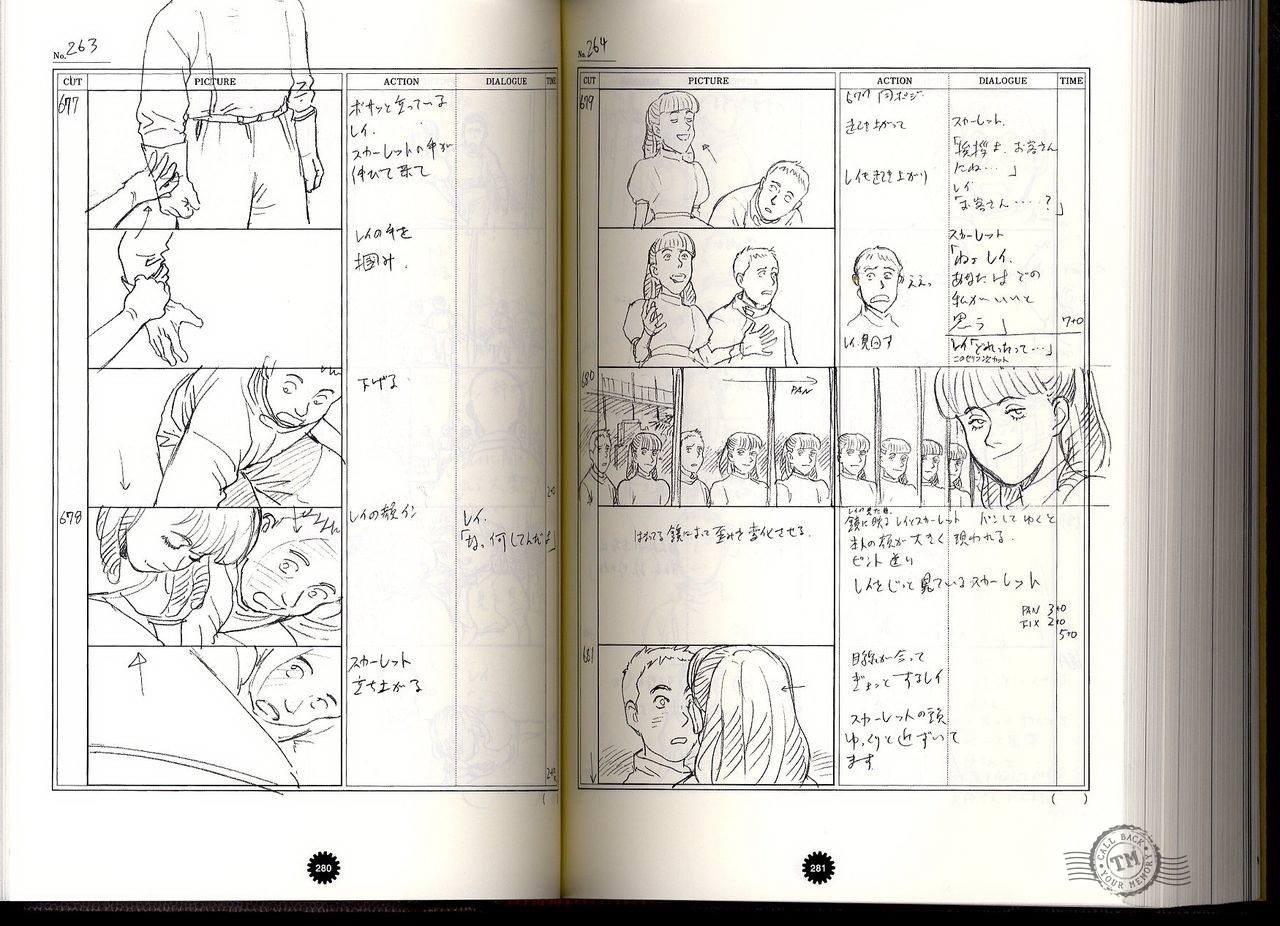 No. 263
CUT PICTURE ACTION DIALOGUE TIME
677
ボサッと立っている
レイ.
スカーレットの手が
伸びて来て
レイの手を
掴み.
下げる
678
レイの顔イン
レイ.
「ね、何してんだよ」
スカーレット
立ち上がる
280
No. 264
CUT PICTURE ACTION DIALOGUE TIME
679
677 同ポジ.
起き上がって
レイも起き上がり
スカーレット.
「挨拶よ、お客さん
にね…」
レイ
「お客さん……?」
ええっ
レイ見回す
スカーレット
「ねェレイ.
あなたはどの
私がいいと
思う」
7+0
レイ「どれったって…」
このセリフ次カット
680
PAN
レイの見た目.
鏡に映るレイとスカーレット パンしてゆくと
本人の顔が大きく現われる.
ピント送り
レイをじっと見ているスカーレット
PAN 3+0
FIX 2+0
5+0
鏡によって歪みを変化させる.
681
目線が合って
ぎょっとするレイ
スカーレットの頭
ゆっくりと近ずいて
ます
281
CALL BACK
TM
YOUR MEMORY